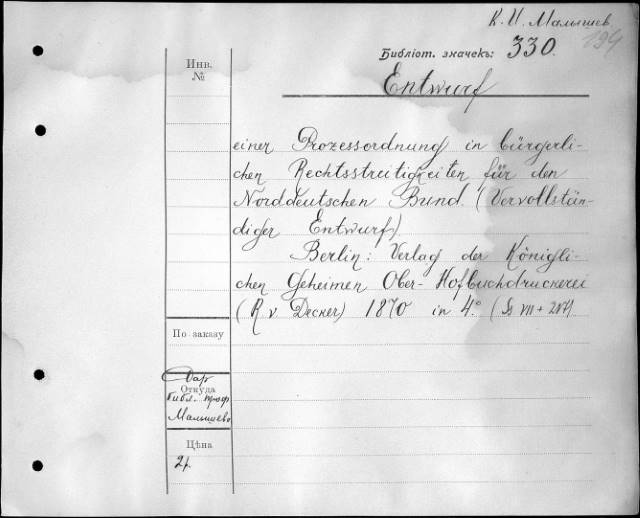 К. И. Малышев.
194
Библіот. значекъ: 330.
Инв.
№
Entwurf
einer Prozessordnung in bürgerli-
chen Rechtsstreitigkeiten für den
Norddeutschen Bund. (Vervollstän-
diger Entwurf).
Berlin: Verlag der Königli-
chen Geheimen Ober-Hofbuchdruckerei
(R v. Decker) 1870 in 4° (Ss VIII +
По заказу
Дар
Откуда
библ. проф
Малышева
Цѣна
2 р.